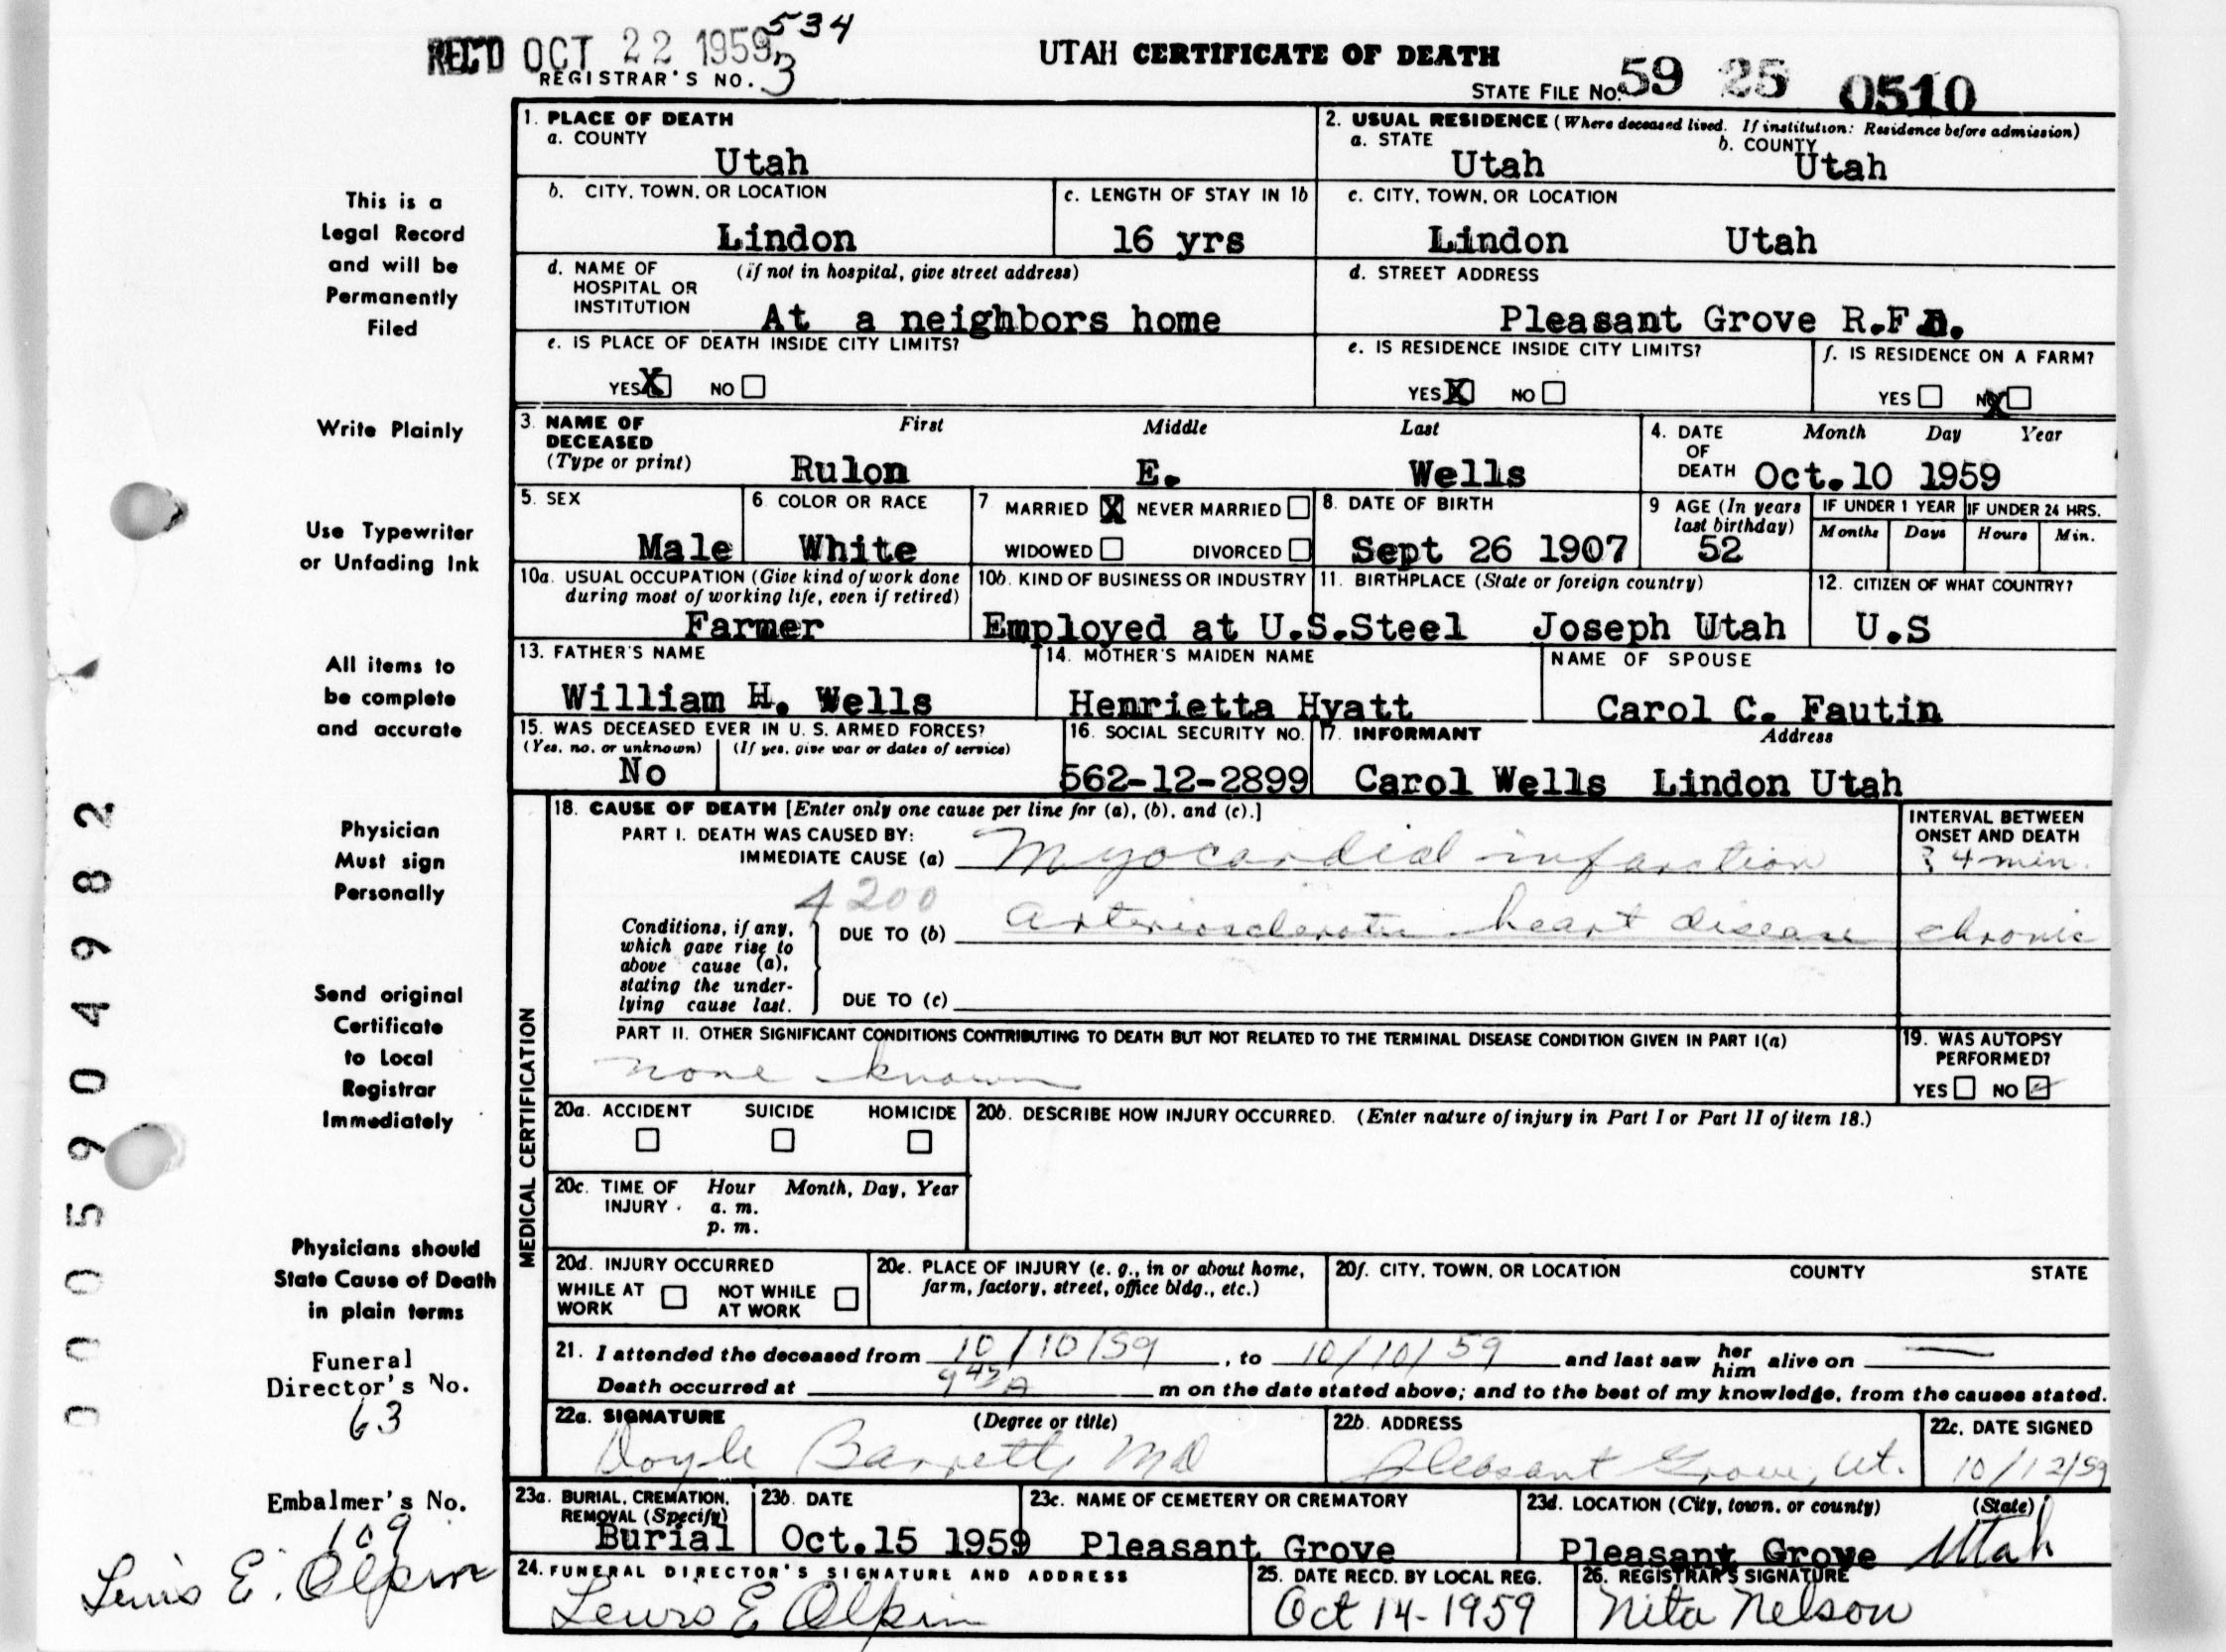 534
REC'D OCT 22 1959
REGISTRAR'S NO. 3
UTAH CERTIFICATE OF DEATH
STATE FILE NO. 59 25 0510
This is a
Legal Record
and will be
Permanently
Filed
Write Plainly
Use Typewriter
or Unfading Ink
All items to
be complete
and accurate
Physician
Must sign
Personally
Send original
Certificate
to Local
Registrar
Immediately
Physicians should
State Cause of Death
in plain terms
Funeral
Director's No.
63
Embalmer's No.
109
Lewis E. Olpin
000590 4982
1. PLACE OF DEATH
a. COUNTY
Utah
2. USUAL RESIDENCE (Where deceased lived. If institution: Residence before admission)
a. STATE b. COUNTY
Utah Utah
b. CITY, TOWN, OR LOCATION
Lindon
c. LENGTH OF STAY IN 1b
16 yrs
c. CITY, TOWN, OR LOCATION
Lindon Utah
d. NAME OF (if not in hospital, give street address)
HOSPITAL OR
INSTITUTION
At a neighbors home
d. STREET ADDRESS
Pleasant Grove R.F.D.
e. IS PLACE OF DEATH INSIDE CITY LIMITS?
YES X NO
e. IS RESIDENCE INSIDE CITY LIMITS?
YES X NO
f. IS RESIDENCE ON A FARM?
YES NO X
3. NAME OF First Middle Last
DECEASED
(Type or print) Rulon E. Wells
4. DATE Month Day Year
OF
DEATH Oct.10 1959
5. SEX
Male
6. COLOR OR RACE
White
7 MARRIED X NEVER MARRIED
WIDOWED DIVORCED
8. DATE OF BIRTH
Sept 26 1907
9 AGE (In years
last birthday)
52
IF UNDER 1 YEAR IF UNDER 24 HRS.
Months Days Hours Min.
10a. USUAL OCCUPATION (Give kind of work done
during most of working life, even if retired)
Farmer
10b. KIND OF BUSINESS OR INDUSTRY
Employed at U.S.Steel
11. BIRTHPLACE (State or foreign country)
Joseph Utah
12. CITIZEN OF WHAT COUNTRY?
U.S
13. FATHER'S NAME
William H. Wells
14. MOTHER'S MAIDEN NAME
Henrietta Hyatt
NAME OF SPOUSE
Carol C. Fautin
15. WAS DECEASED EVER IN U. S. ARMED FORCES?
(Yes, no, or unknown) (If yes, give war or dates of service)
No
16. SOCIAL SECURITY NO.
562-12-2899
17. INFORMANT Address
Carol Wells Lindon Utah
MEDICAL CERTIFICATION
18. CAUSE OF DEATH [Enter only one cause per line for (a), (b), and (c).]
PART I. DEATH WAS CAUSED BY:
IMMEDIATE CAUSE (a) Myocardial infarction
INTERVAL BETWEEN
ONSET AND DEATH
? 4 min.
4200
Conditions, if any,
which gave rise to
above cause (a),
stating the under-
lying cause last.
DUE TO (b) Arteriosclerotic heart disease chronic
DUE TO (c)
PART II. OTHER SIGNIFICANT CONDITIONS CONTRIBUTING TO DEATH BUT NOT RELATED TO THE TERMINAL DISEASE CONDITION GIVEN IN PART I(a)
none known
19. WAS AUTOPSY
PERFORMED?
YES NO
20a. ACCIDENT SUICIDE HOMICIDE
20b. DESCRIBE HOW INJURY OCCURRED. (Enter nature of injury in Part I or Part II of item 18.)
20c. TIME OF Hour Month, Day, Year
INJURY a. m.
p. m.
20d. INJURY OCCURRED
WHILE AT WORK NOT WHILE AT WORK
20e. PLACE OF INJURY (e. g., in or about home,
farm, factory, street, office bldg., etc.)
20f. CITY, TOWN, OR LOCATION COUNTY STATE
21. I attended the deceased from 10/10/59, to 10/10/59 and last saw her him alive on —
Death occurred at 9 45 A m on the date stated above; and to the best of my knowledge, from the causes stated.
22a. SIGNATURE (Degree or title)
Doyle Barrett, MD
22b. ADDRESS
Pleasant Grove, Ut.
22c. DATE SIGNED
10/12/59
23a. BURIAL, CREMATION,
REMOVAL (Specify)
Burial
23b. DATE
Oct.15 1959
23c. NAME OF CEMETERY OR CREMATORY
Pleasant Grove
23d. LOCATION (City, town, or county) (State)
Pleasant Grove Utah
24. FUNERAL DIRECTOR'S SIGNATURE AND ADDRESS
Lewis E Olpin
25. DATE RECD. BY LOCAL REG.
Oct 14-1959
26. REGISTRAR'S SIGNATURE
Nita Nelson